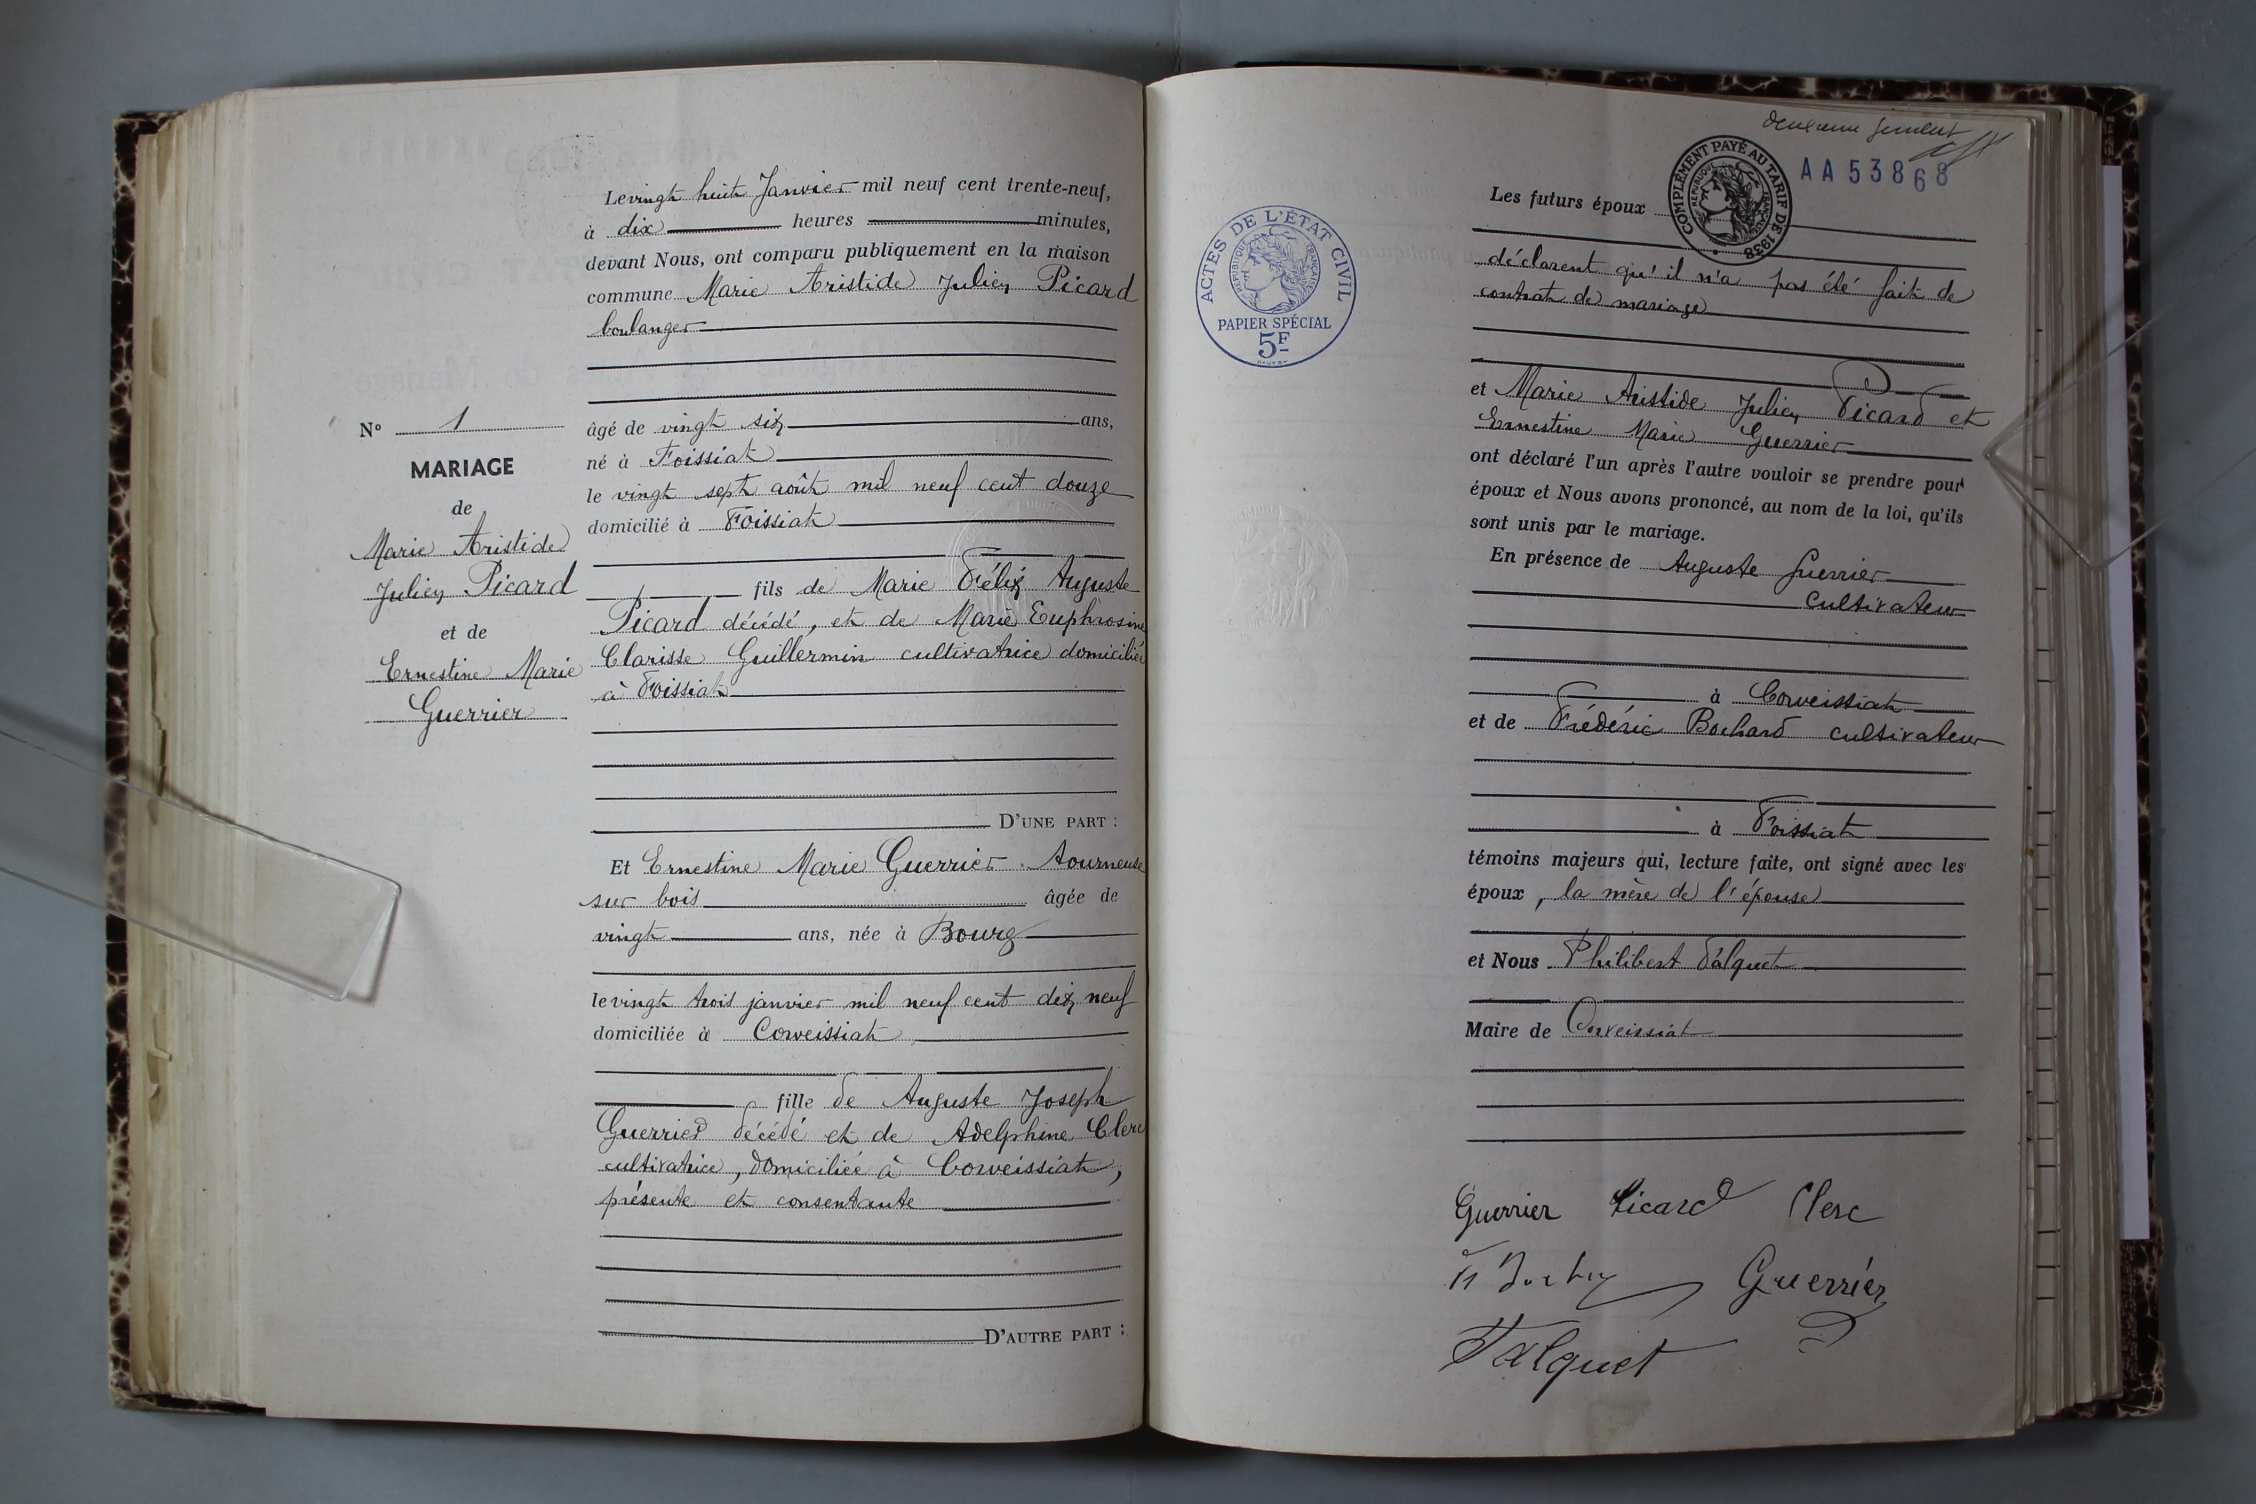 Le vingt huit Janvier mil neuf cent trente-neuf,
à dix heures minutes,
devant Nous, ont comparu publiquement en la maison
commune Marie Aristide Julien Picard
boulanger
âgé de vingt six ans,
né à Foissiat
le vingt sept août mil neuf cent douze
domicilié à Foissiat
fils de Marie Félix Auguste
Picard décédé, et de Marie Euphrosine
Clarisse Guillermin cultivatrice domiciliée
à Foissiat
D'UNE PART :
Et Ernestine Marie Guerrier tourneuse
sur bois âgée de
vingt ans, née à Bourg
le vingt trois janvier mil neuf cent dix neuf
domiciliée à Corveissiat
fille de Auguste Joseph
Guerrier décédé et de Adelphine Clerc
cultivatrice, domiciliée à Corveissiat,
présente et consentante
D'AUTRE PART :
N° 1
MARIAGE
de
Marie Aristide
Julien Picard
et de
Ernestine Marie
Guerrier
ACTES DE L'ÉTAT CIVIL
RÉPUBLIQUE FRANÇAISE
PAPIER SPÉCIAL
5F
deuxième
COMPLÉMENT PAYÉ AU TARIF DE 1938
RÉPUBLIQUE FRANÇAISE
AA 53868
Les futurs époux
déclarent qu'il n'a pas été fait de
contrat de mariage
et Marie Aristide Julien Picard et
Ernestine Marie Guerrier
ont déclaré l'un après l'autre vouloir se prendre pour
époux et Nous avons prononcé, au nom de la loi, qu'ils
sont unis par le mariage.
En présence de Auguste Guerrier
cultivateur
à Corveissiat
et de Frédéric Bochard cultivateur
à Foissiat
témoins majeurs qui, lecture faite, ont signé avec les
époux, la mère de l'épouse
et Nous Philibert Falquet
Maire de Corveissiat
Guerrier Picard Clerc
Guerrier
Falquet